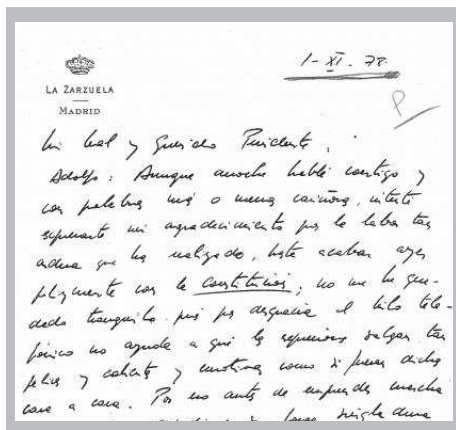 1-XI-78
LA ZARZUELA
MADRID
Mi leal y Querido Presidente,
Adolfo: Aunque anoche hablé contigo y
con palabras más o menos cariñosas, intenté
expresarte mi agradecimiento por la labor tan
ardua que ha realizado, hasta acabar ayer
felizmente con la Constitución; no me he que-
dado tranquilo pués por desgracia el hilo tele-
fónico no ayuda a qué las expresiones salgan tan
felices y calientes y emotivas como si fueran dichas
cara a cara. Por eso antes de emprender marcha